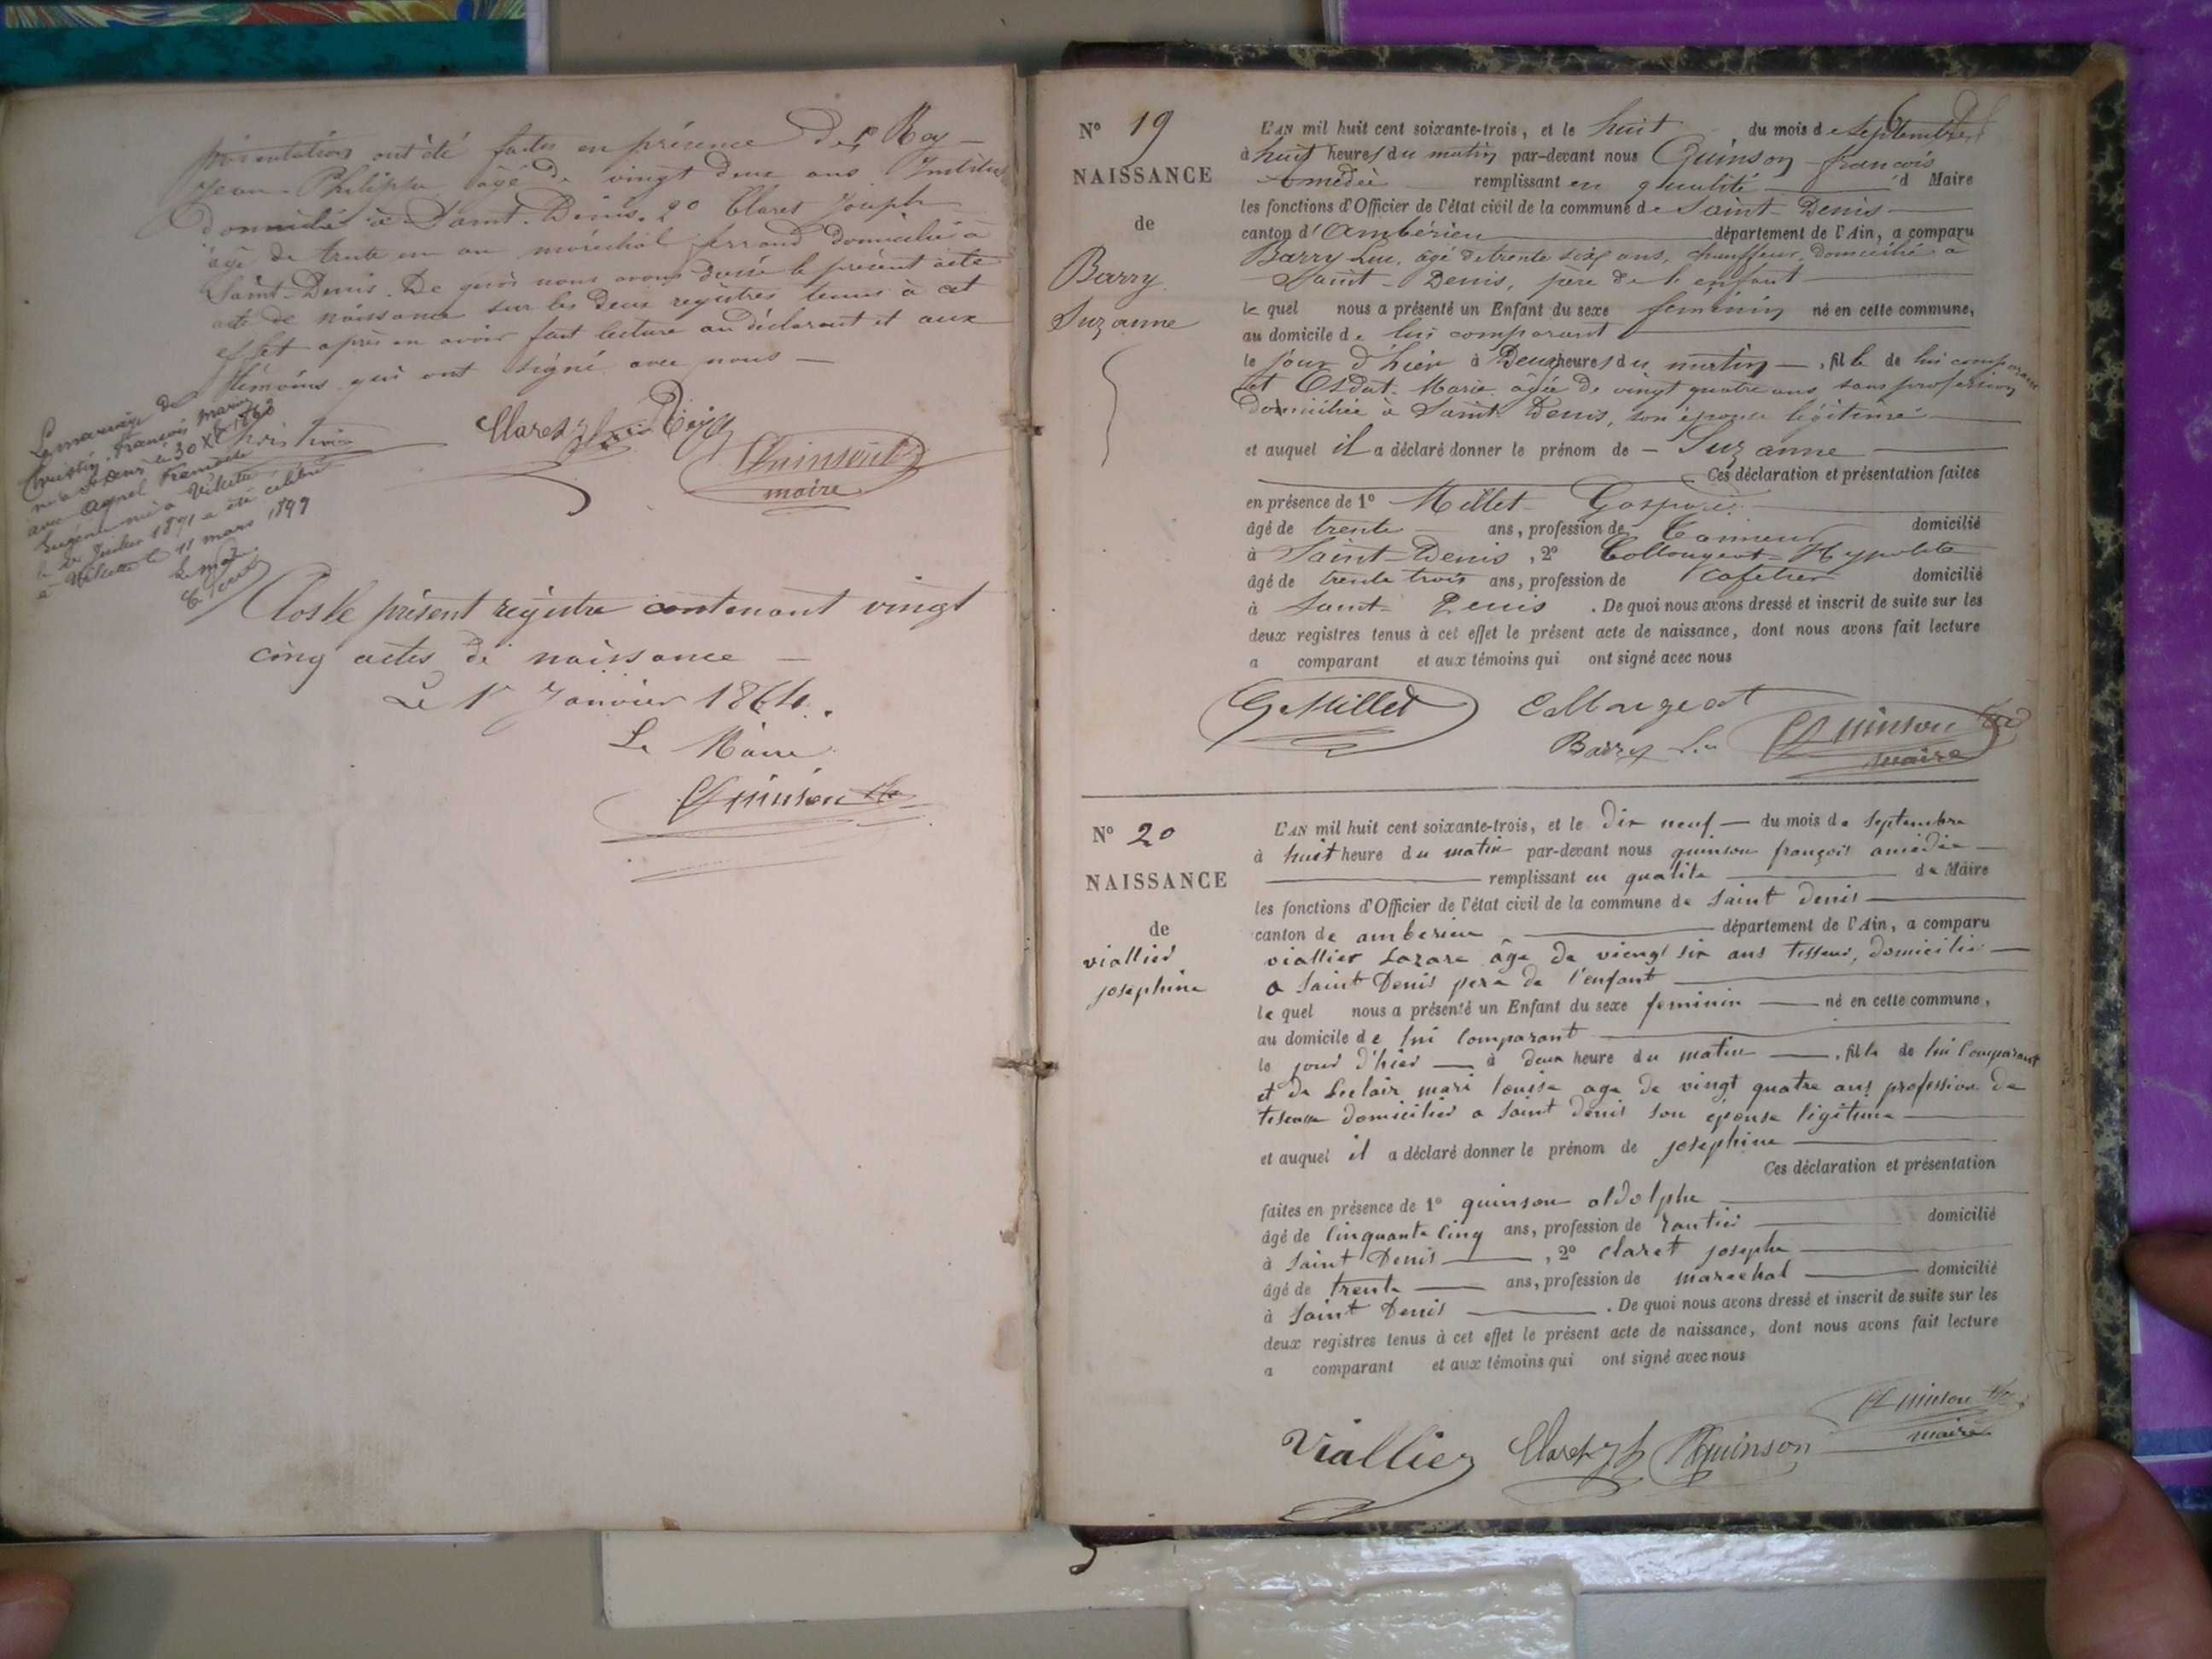 présentation ont été faites en présence de 1° Roy
Jean-Philippe âgé de vingt deux ans Institut
domicilié à Saint-Denis. 2° Claret Joseph
âgé de trente un an maréchal ferrand domicilié à
Saint-Denis. De quoi nous avons dressé le présent acte
acte de naissance sur les deux registres tenus à cet
effet après en avoir fait lecture au déclarant et aux
témoins qui ont signé avec nous
Christin
Claret Jh Roy
Quinson
maire
Le mariage de
Christin François Marie
né à St Denis le 30 Xbre 1863
avec
Eugénie née à
le Juillet 1871 a été célébré
à le 11 mars 1899
Le maire
Clos le présent registre contenant vingt
cinq actes de naissance
Le 1r Janvier 1864.
Le Maire
Quinson
N° 19
NAISSANCE
de
Barry
Suzanne
L'AN mil huit cent soixante-trois, et le huit du mois de septembre
à huit heures du matin par-devant nous Quinson françois
Amédée remplissant en qualité d Maire
les fonctions d'Officier de l'état civil de la commune de Saint-Denis
canton d'Ambérieu département de l'Ain, a comparu
Barry Luc, âgé de trente six ans, chauffeur, domicilié à
Saint-Denis, père de l'enfant
le quel nous a présenté un Enfant du sexe féminin né en cette commune,
au domicile de lui comparant
le jour d'hier à Deux heures du matin , fille de lui comparant
et Marie âgée de vingt quatre ans sans profession
Domiciliée à Saint-Denis, son épouse légitime
et auquel il a déclaré donner le prénom de - Suzanne
Ces déclaration et présentation faites
en présence de 1° Millet Gaspard
âgé de trente ans, profession de Tanneur domicilié
à Saint-Denis, 2° Collongeat Hypolite
âgé de trente trois ans, profession de Cafetier domicilié
à Saint-Denis . De quoi nous avons dressé et inscrit de suite sur les
deux registres tenus à cet effet le présent acte de naissance, dont nous avons fait lecture
a comparant et aux témoins qui ont signé avec nous
G. Millet Collongeat
Barry Luc Quinson
maire
N° 20
NAISSANCE
de
viallier
josephine
L'AN mil huit cent soixante-trois, et le dix neuf du mois de septembre
à huit heure du matin par-devant nous quinson françois amédée
remplissant en qualité de Maire
les fonctions d'Officier de l'état civil de la commune de Saint denis
canton de amberieu département de l'Ain, a comparu
viallier Lazare âge de viengt six ans tisseur, domicilie
a Saint Denis pere de l'enfant
le quel nous a présenté un Enfant du sexe feminin né en cette commune,
au domicile de lui comparant
le jour d'hier à deux heure du matin , fille de lui comparant
et de Leclair mari louise age de vingt quatre ans profession de
tiseuse domicilier a saint denis son epouse ligitime
et auquel il a déclaré donner le prénom de josephine
Ces déclaration et présentation
faites en présence de 1° quinson aldolphe
âgé de cinquante cinq ans, profession de rantier domicilié
à Saint Denis , 2° claret josephe
âgé de trente ans, profession de marechal domicilié
à Saint Denis . De quoi nous avons dressé et inscrit de suite sur les
deux registres tenus à cet effet le présent acte de naissance, dont nous avons fait lecture
a comparant et aux témoins qui ont signé avec nous
Viallier Claret Jh Quinson Quinson
maire